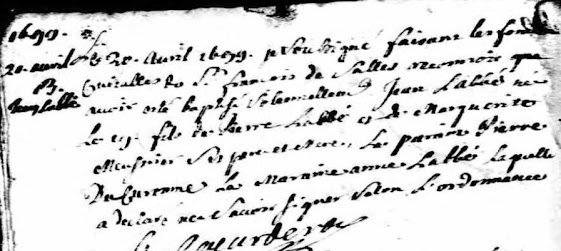 1699.
20. avril Le 20. Avril 1699. je soussigné faisant les fonctions
B. Curialles de St. francois de Salles reconnois que
Jean Labbé avoir esté baptisé solemnellem Jean Labbé né
Le 19. fils de Pierre Labbé et de Marguerite
Meusnier Ses pere et mere. Le parain Pierre
La Maraine anne Labbé Laquelle
a declaré ne Scavoir signer Selon L'ordonnance